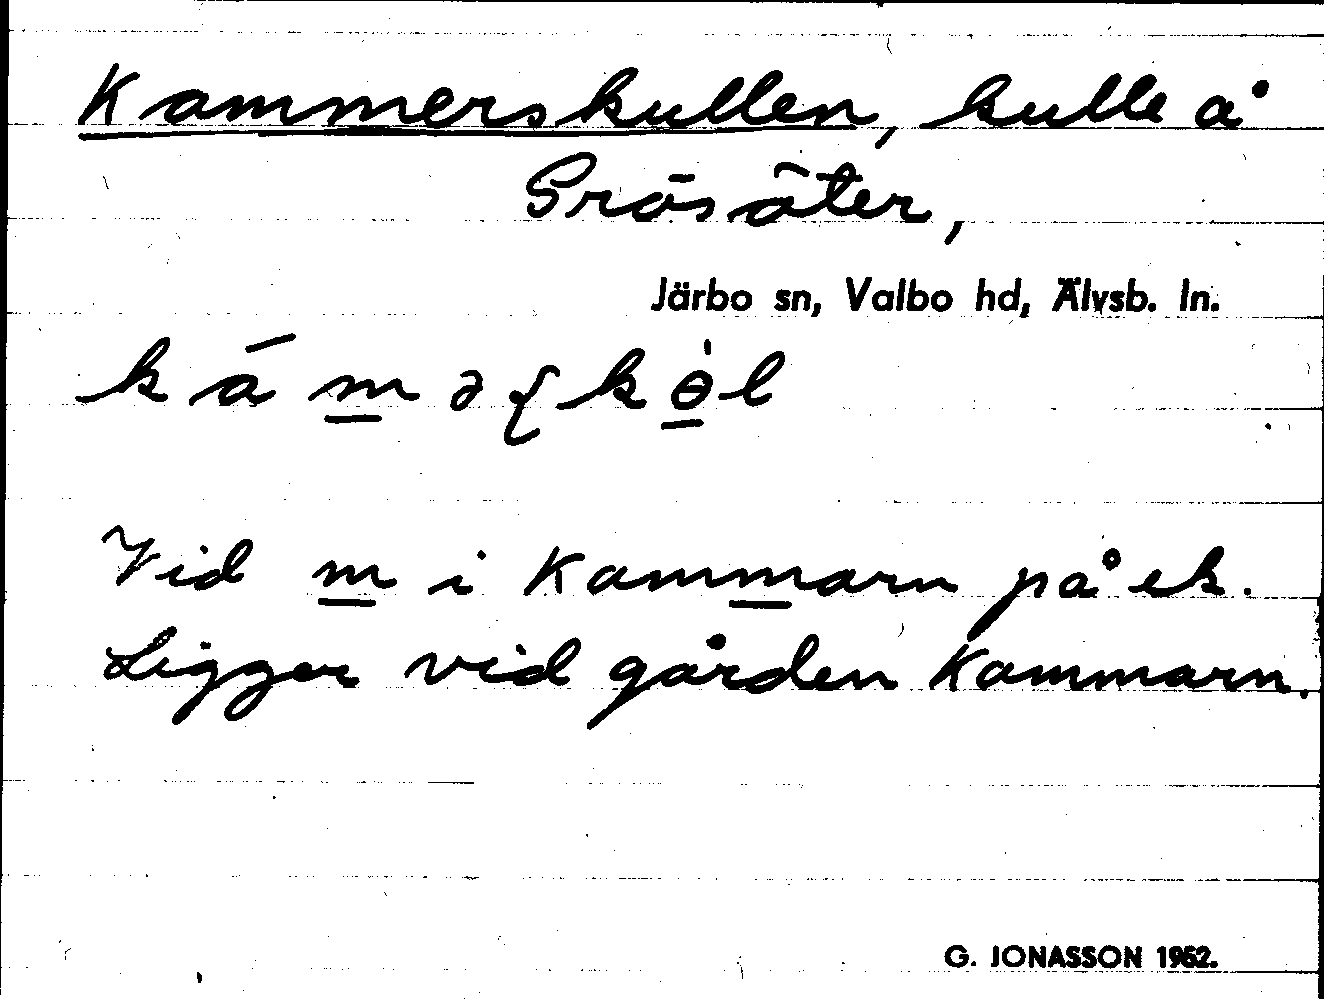 Kammerskullen, kulle å
Grösäter,
Järbo sn, Valbo hd, Älvsb. ln.
Vid m i Kammarn på ek.
Ligger vid gården Kammarn.
G. JONASSON 1962.